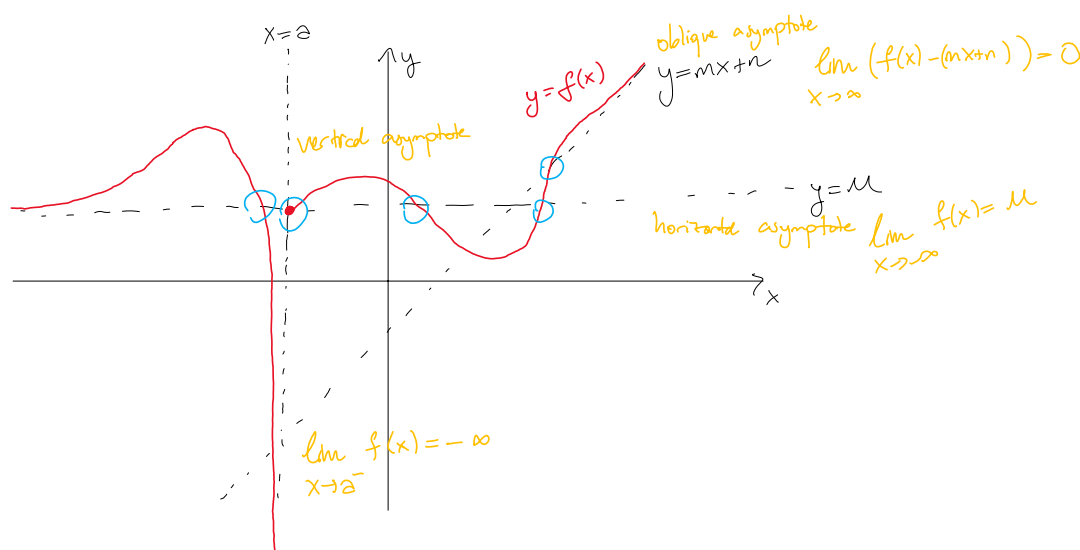 x=a
y
oblique asymptote
y=mx+n
lim (f(x)-(mx+n))=0
x→∞
y=f(x)
vertical asymptote
y=μ
horizontal asymptote
lim f(x)=μ
x→-∞
x
lim f(x)=-∞
x→a⁻